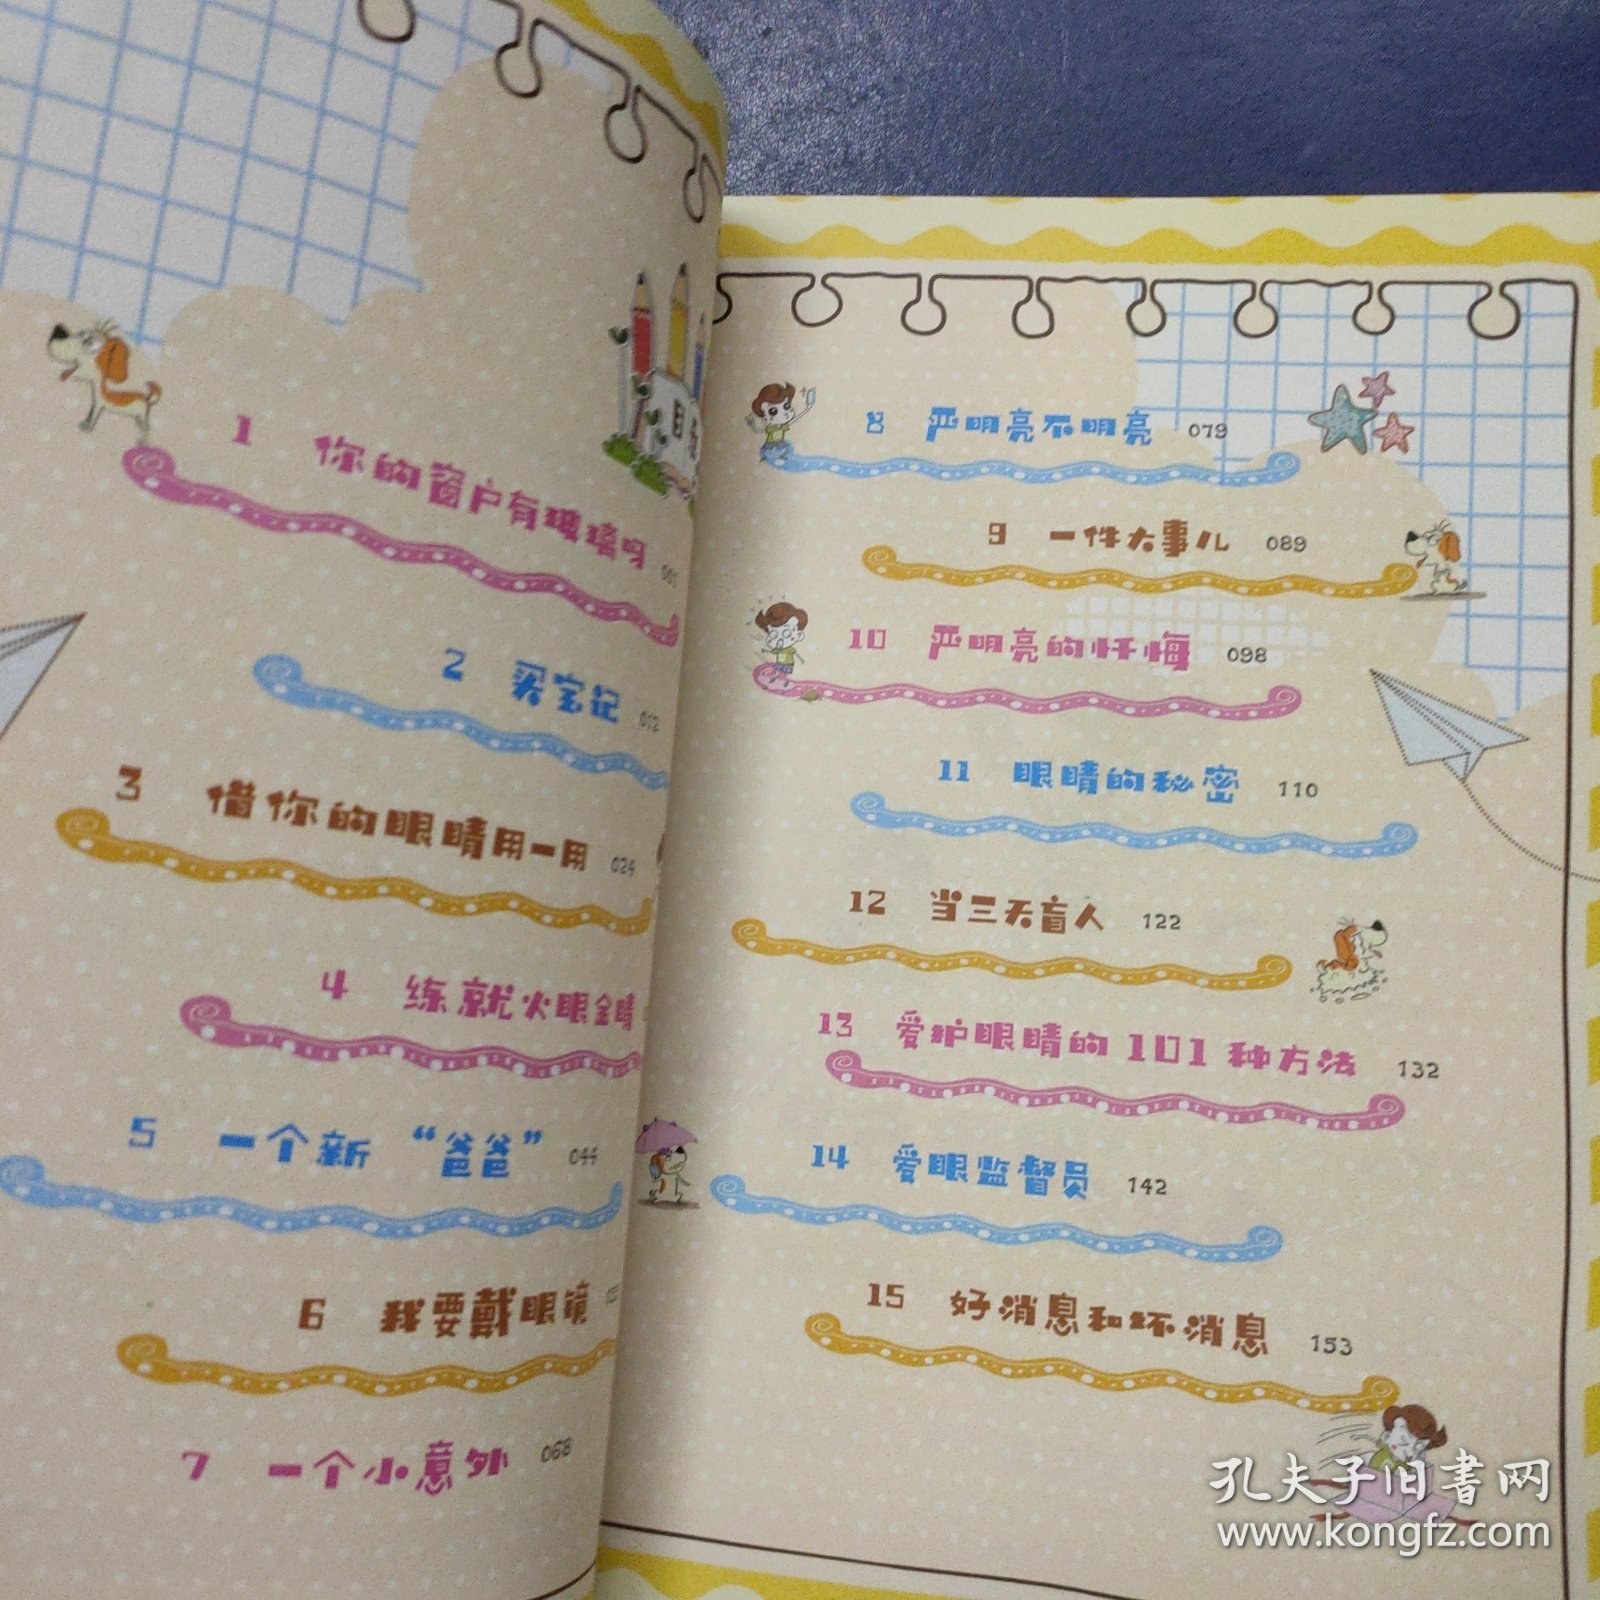 目录
1 你的窗户有玻璃吗
2 买宝记 012
3 借你的眼睛用一用 024
4 练就火眼金睛
5 一个新“爸爸” 044
6 我要戴眼镜
7 一个小意外 068
8 严明亮不明亮 079
9 一件大事儿 089
10 严明亮的忏悔 098
11 眼睛的秘密 110
12 当三天盲人 122
13 爱护眼睛的101种方法 132
14 爱眼监督员 142
15 好消息和坏消息 153
孔夫子旧书网
www.kongfz.com